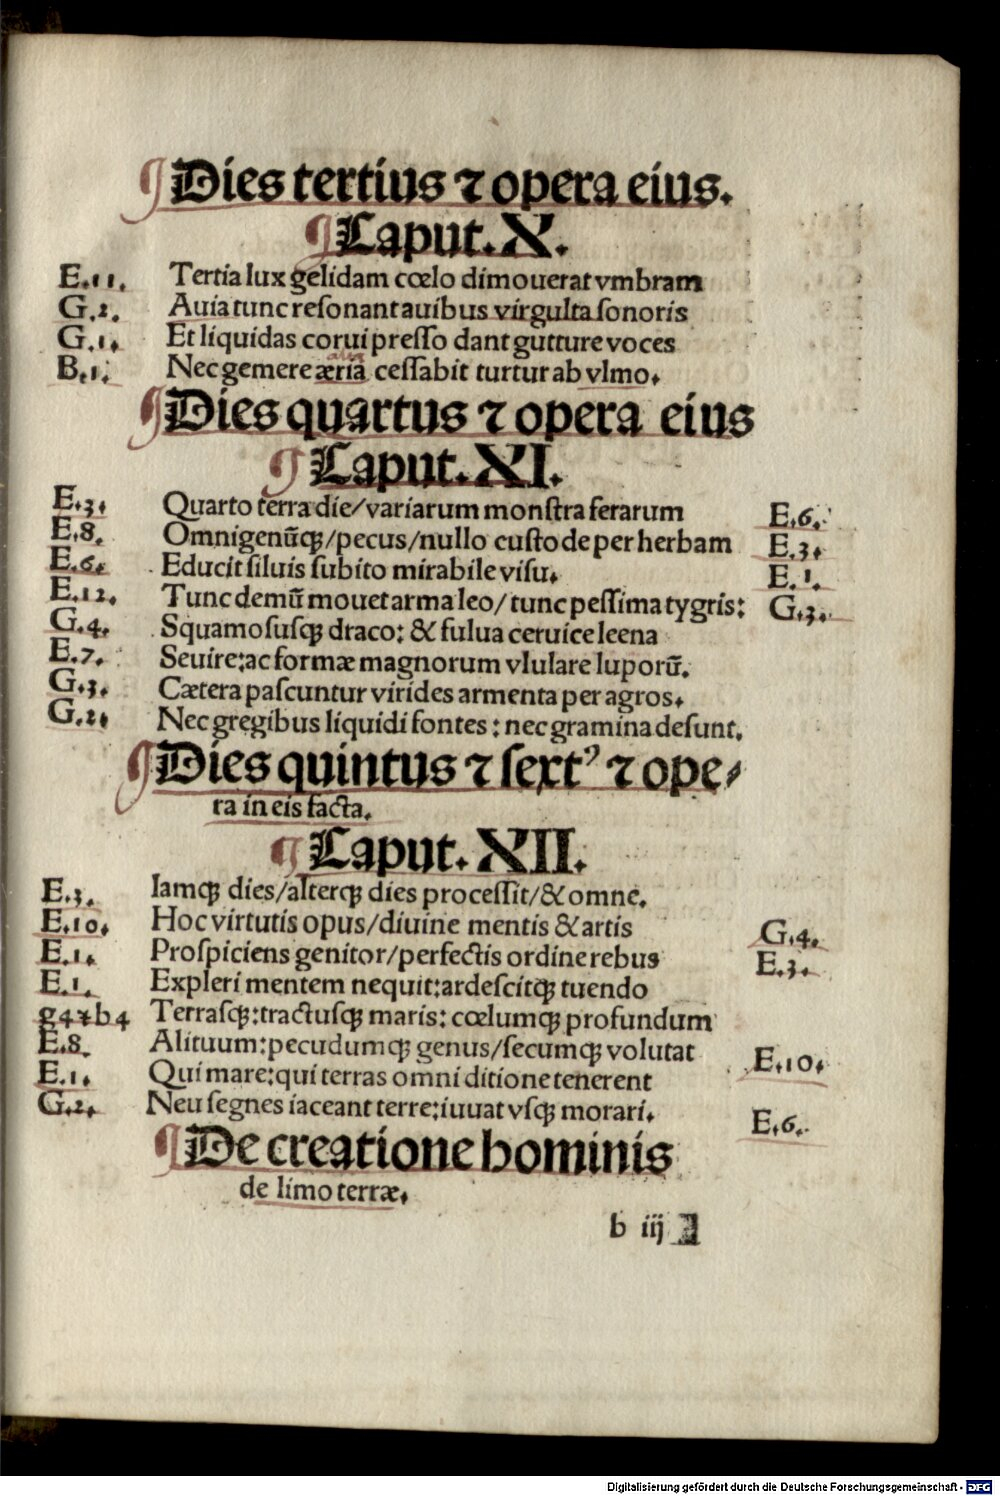 ¶ Dies tertius ⁊ opera eius.
¶ Caput. X.
E.11. Tertia lux gelidam cœlo dimouerat vmbram
G.2. Auia tunc resonant auibus virgulta sonoris
G.1. Et liquidas corui presso dant gutture voces
B.1. Nec gemere æria cessabit turtur ab vlmo.
¶ Dies quartus ⁊ opera eius
¶ Caput. XI.
E.3. Quarto terra die/variarum monstra ferarum E.6.
E.8. Omnigenũqꝫ/pecus/nullo custode per herbam E.3.
E.6. Educit siluis subito mirabile visu. E.1.
E.12. Tunc demũ mouet arma leo/tunc pessima tygris: G.3.
G.4. Squamosusqꝫ draco: & fulua ceruice leena
E.7. Seuire:ac formæ magnorum vlulare luporũ.
G.3. Cætera pascuntur virides armenta per agros.
G.2. Nec gregibus liquidi fontes: nec gramina desunt.
¶ Dies quintus ⁊ sextꝰ ⁊ ope/
ra in eis facta.
¶ Caput. XII.
E.3. Iamqꝫ dies/alterqꝫ dies processit/& omne.
E.10. Hoc virtutis opus/diuine mentis & artis G.4.
E.1. Prospiciens genitor/perfectis ordine rebus E.3.
E.1. Expleri mentem nequit:ardescitqꝫ tuendo
g4⁊b4 Terrasqꝫ:tractusqꝫ maris: cœlumqꝫ profundum
E.8. Alituum:pecudumqꝫ genus/secumqꝫ volutat E.10.
E.1. Qui mare:qui terras omni ditione tenerent
G.2. Neu segnes iaceant terre:iuuat vsqꝫ morari. E.6.
¶ De creatione hominis
de limo terræ.
b iij
Digitalisierung gefördert durch die Deutsche Forschungsgemeinschaft - DFG